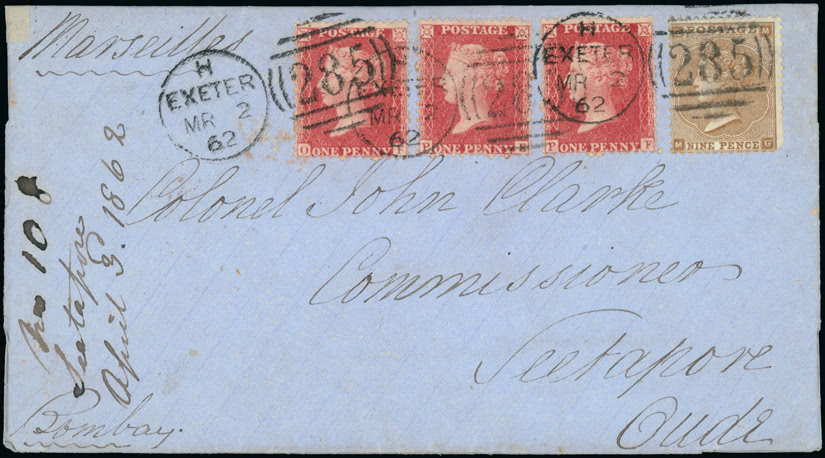 Marseilles
H
EXETER
MR 2
62
285
POSTAGE
ONE PENNY
POSTAGE
ONE PENNY
POSTAGE
P F
ONE PENNY
H
EXETER
MR 2
62
285
POSTAGE
M G
NINE PENCE
MR 2
62
Colonel John Clarke
Commissioner
Seetapore
Oude
No 10
Seetapore
April 9. 1862
Bombay.